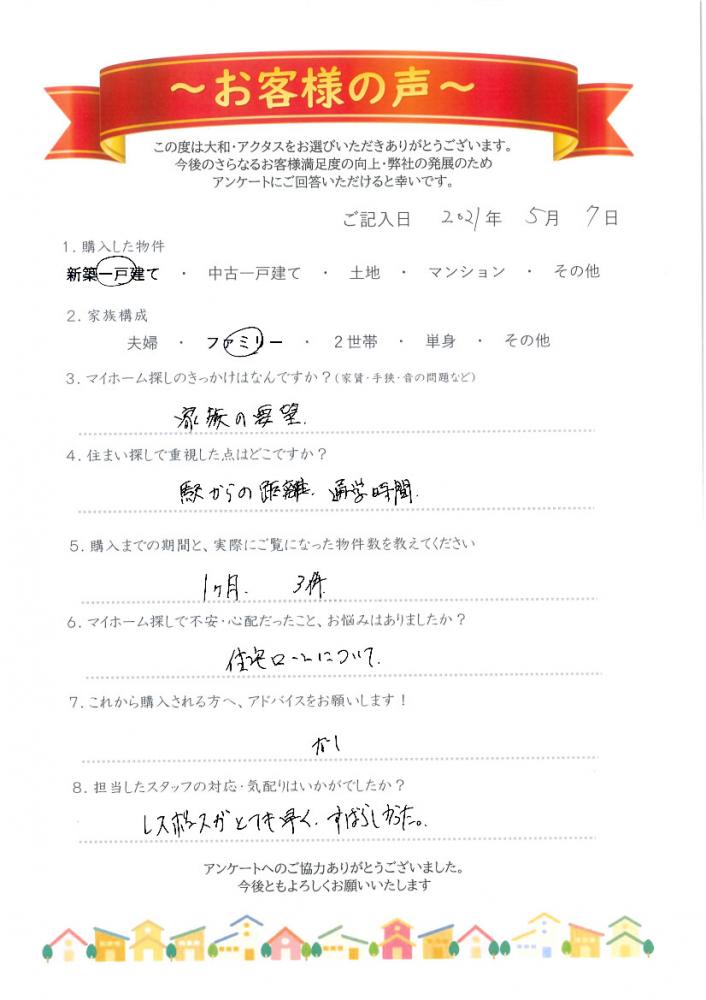 ～お客様の声～
この度は大和・アクタスをお選びいただきありがとうございます。
今後のさらなるお客様満足度の向上・弊社の発展のため
アンケートにご回答いただけると幸いです。
ご記入日 2021年 5月 7日
1. 購入した物件
新築一戸建て ・ 中古一戸建て ・ 土地 ・ マンション ・ その他
2. 家族構成
夫婦 ・ ファミリー ・ 2世帯 ・ 単身 ・ その他
3. マイホーム探しのきっかけはなんですか？(家賃・手狭・音の問題など)
家族の要望.
4. 住まい探しで重視した点はどこですか？
駅からの距離. 通学時間.
5. 購入までの期間と、実際にご覧になった物件数を教えてください
1ヶ月. 3件.
6. マイホーム探しで不安・心配だったこと、お悩みはありましたか？
住宅ローンについて.
7. これから購入される方へ、アドバイスをお願いします！
なし
8. 担当したスタッフの対応・気配りはいかがでしたか？
レスポンスがとても早く. すばらしかった。
アンケートへのご協力ありがとうございました。
今後ともよろしくお願いいたします